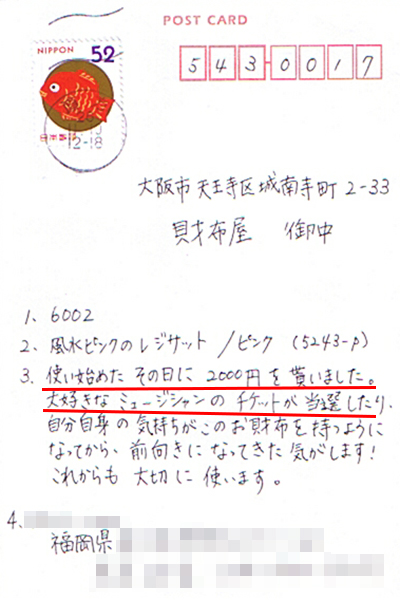 POST CARD
NIPPON 52
日本郵便
12-18
543-0017
大阪市天王寺区城南寺町2-33
財布屋 御中
1、6002
2、風水ピンクのレジサット/ピンク (5243-P)
3、使い始めたその日に2000円を貰いました。
大好きなミュージシャンのチケットが当選したり、
自分自身の気持ちがこのお財布を持つように
なってから、前向きになってきた気がします!
これからも大切に使います。
4、
福岡県